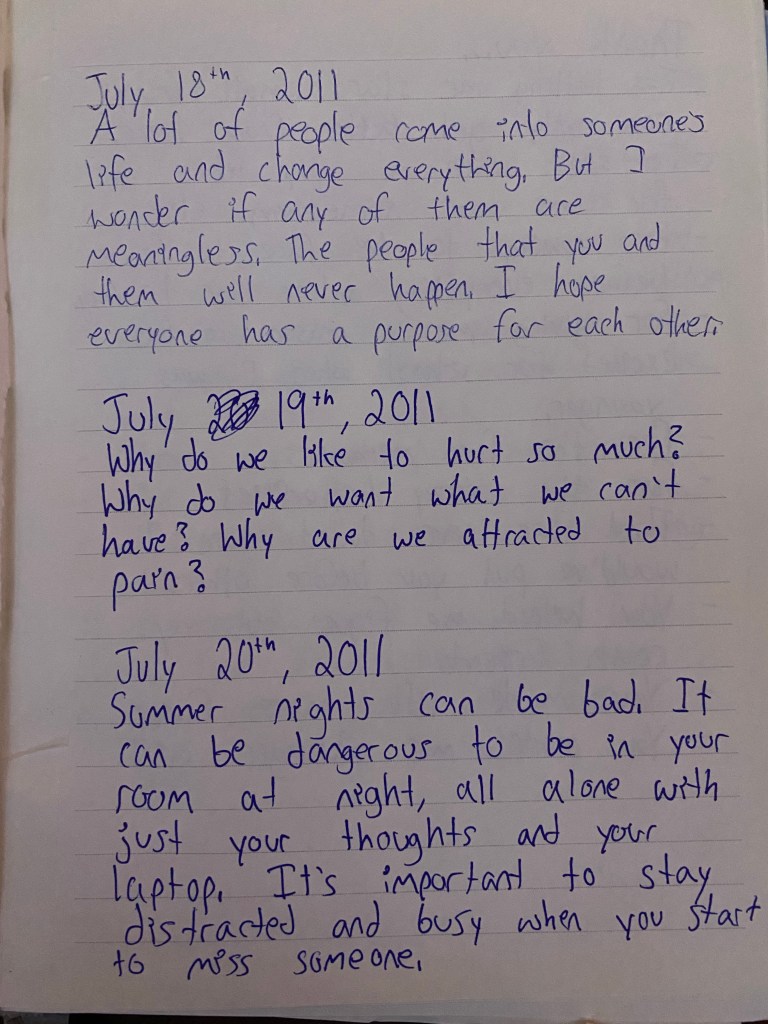 July 18th, 2011
A lot of people come into someone's
life and change everything. But I
wonder if any of them are
meaningless. The people that you and
them will never happen. I hope
everyone has a purpose for each other.
July 19th, 2011
Why do we like to hurt so much?
Why do we want what we can't
have? Why are we attracted to
pain?
July 20th, 2011
Summer nights can be bad. It
can be dangerous to be in your
room at night, all alone with
just your thoughts and your
laptop. It's important to stay
distracted and busy when you start
to miss someone.